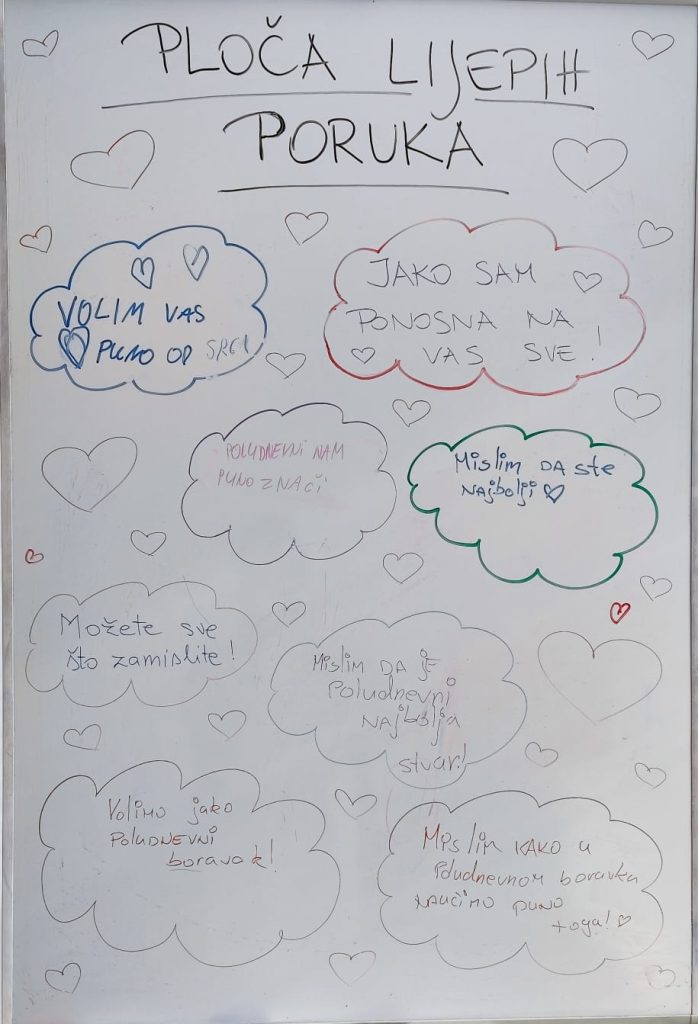 PLOČA LIJEPIH
PORUKA
VOLIM VAS
PUNO OD SRCA
JAKO SAM
PONOSNA NA
VAS SVE!
POLUDNEVNI NAM
PUNO ZNAČI
Mislim DA ste
NAjbolji
Možete sve
što zamislite!
Mislim DA je
Poludnevni
NAjbolja
stvar!
Volimo jako
POLUDNEVNI
boravak!
Mislim KAKO u
Poludnevnom boravku
NAUČIMO PUNO
toga!